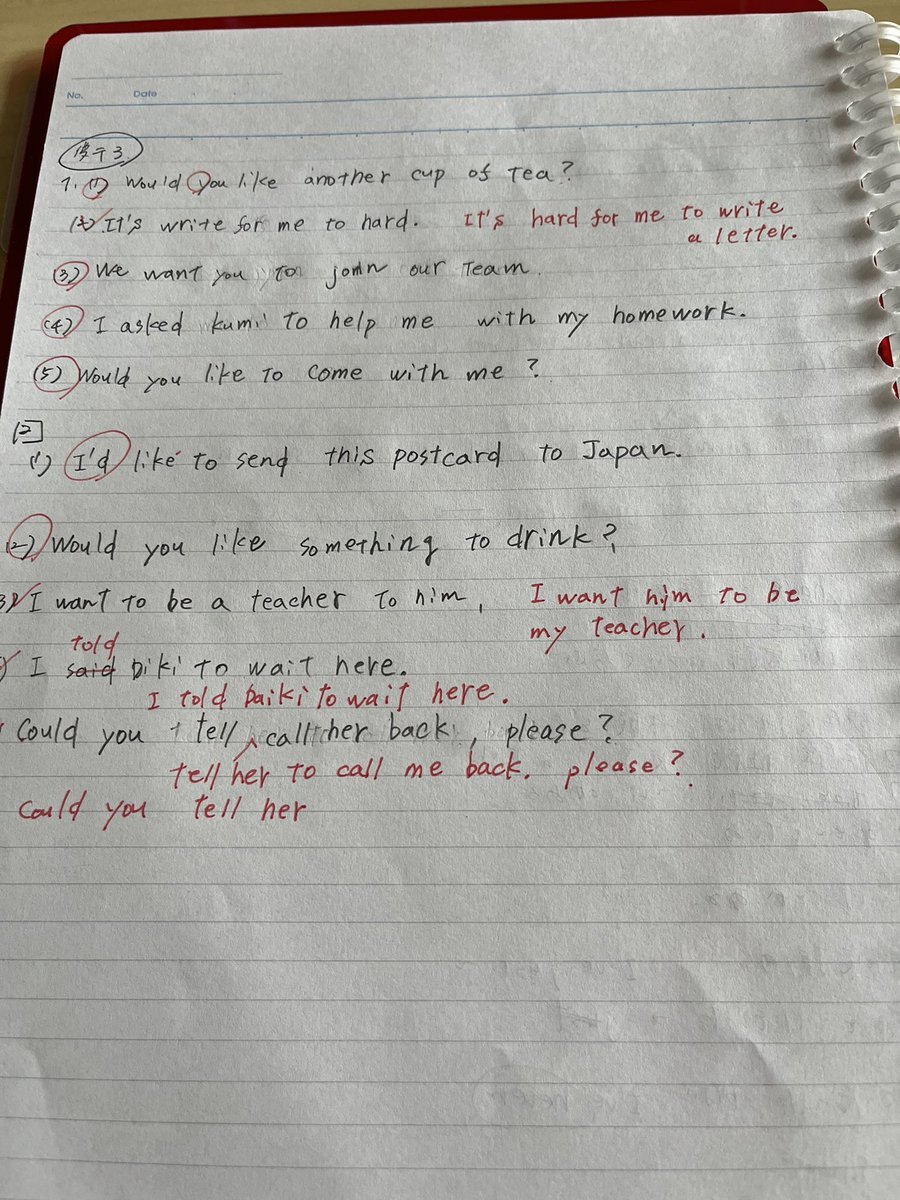 No. Date
1. (1) Would you like another cup of Tea?
It's write for me to hard. It's hard for me to write
a letter.
(3) We want you to join our Team.
(4) I asked kumi to help me with my homework.
(5) Would you like to come with me?
2
(1) I'd like to send this postcard to Japan.
(2) Would you like something to drink?
3) I want to be a teacher to him. I want him to be
my teacher.
told
I said Diki to wait here.
I told Daiki to wait here.
Could you tell call her back, please?
tell her to call me back. please?
Could you tell her